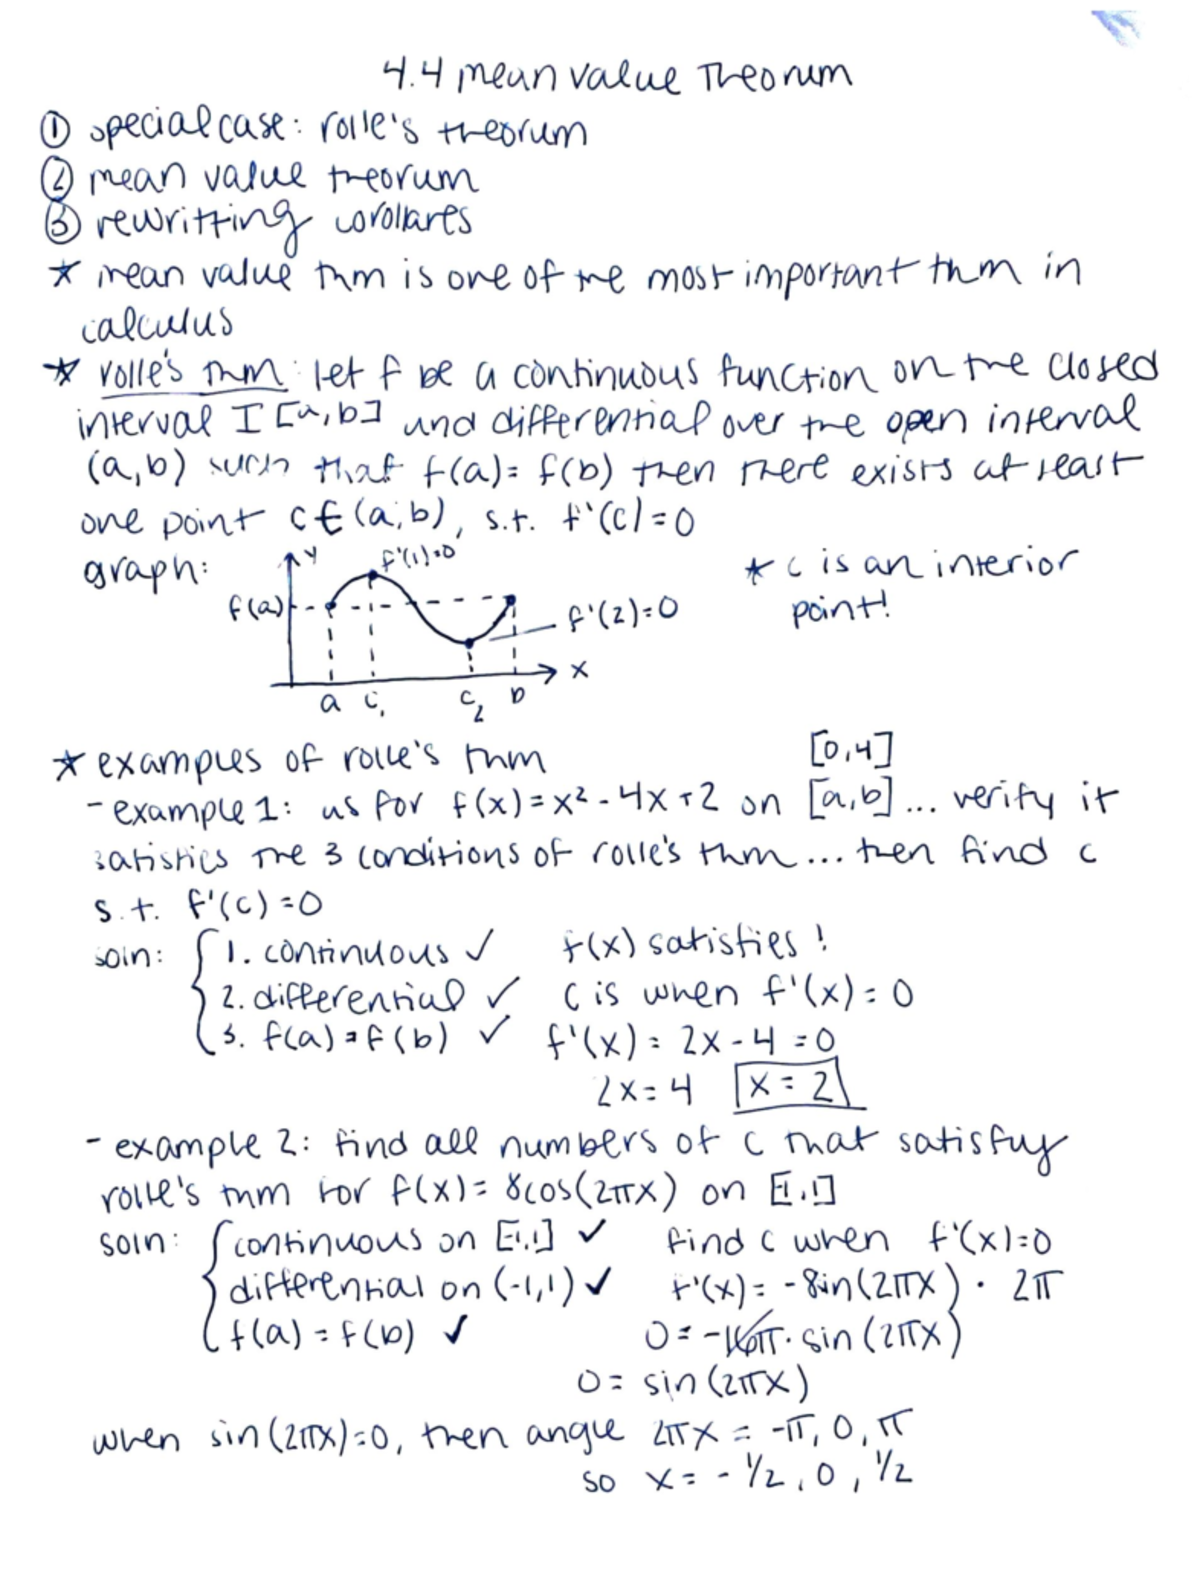 4.4 mean value Theorum
① special case: rolle's theorum
② mean value theorum
③ rewritting corollares
* mean value thm is one of the most important thm in
calculus
* rolle's thm: let f be a continuous function on the closed
interval I [a,b] and differential over the open interval
(a,b) such that f(a)= f(b) then there exists at least
one point c∈(a,b), s.t. f'(c)=0
graph:
y
f'(1)=0
* c is an interior
point!
f(a)
f'(2)=0
x
a c₁ c₂ b
* examples of rolle's thm
[0,4]
- example 1: us for f(x)=x²-4x+2 on [a,b]... verify it
satisfies the 3 conditions of rolle's thm... then find c
s.t. f'(c)=0
soln: { 1. continuous ✓ f(x) satisfies!
2. differential ✓ c is when f'(x)=0
3. f(a)=f(b) ✓ f'(x)= 2x-4=0
2x=4 x=2
- example 2: find all numbers of c that satisfy
rolle's thm for f(x)= 8cos(2πx) on [-1,1]
soln: { continuous on [-1,1] ✓ find c when f'(x)=0
differential on (-1,1) ✓ f'(x)= -8sin(2πx) · 2π
f(a)=f(b) ✓ 0=-16π·sin(2πx)
0= sin(2πx)
when sin(2πx)=0, then angle 2πx = -π, 0, π
so x= -1/2, 0, 1/2